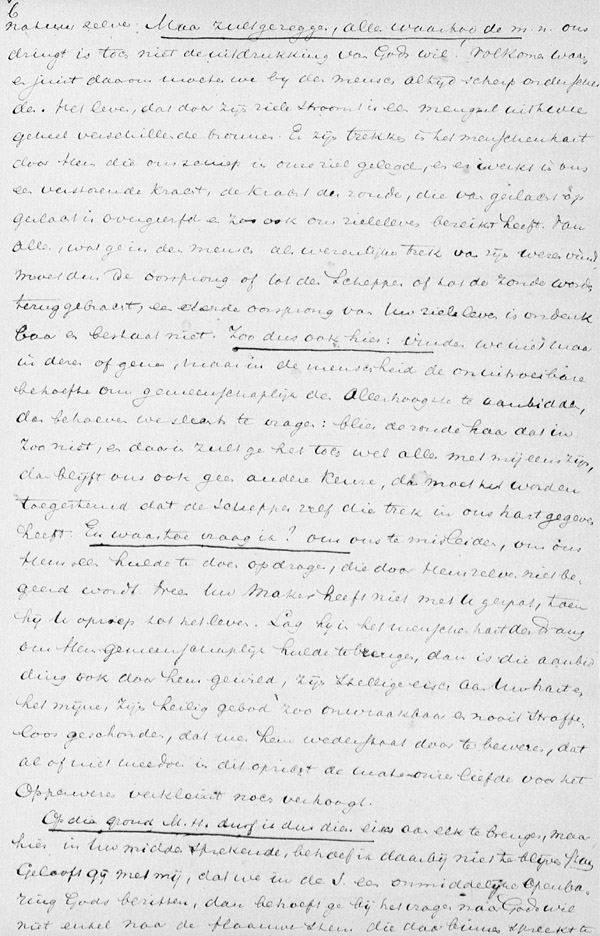 6
natuur zelve. Maar zult ge zeggen, alles waartoe de m. n. ons
dringt is toch niet de uitdrukking van Gods wil! Volkomen waar
en juist daarom mochten we bij den mensch altijd scherp onderschei-
den. Het leven, dat door zijn ziele stroomt is een mengsel uit twee
geheel verschillende bronnen. Er zijn trekken in het menschenhart
door Hem die ons schiep in onze ziel gelegd, en er werkt in ons
een verstorende kracht, de kracht der zonde, die van geslacht op
geslacht is overgeërfd en zoo ook ons zieleleven bereikt heeft. Van
alles, wat ge in den mensch als wezenlijke trek van zijn wezen vindt,
moet dus De oorsprong of tot den Schepper of tot de Zonde worden
teruggebracht, een derde oorsprong van Uw zieleleven is ondenk
baar en bestaat niet. Zoo dus ook hier: Vinden we niet maar
in dezen of genen, maar in de menschheid de onuitroeibare
behoefte om gemeenschappelijk den Allerhoogste te aanbidden,
dan behoeven we slechts te vragen: blies de zonde haar dat in
Zoo niet, en daarin zult ge het toch wel allen met mij eens zijn,
dan blijft ons ook geen andere keuze, dan moet het worden
toegestemd dat de Schepper zelf die trek in ons hart gegeven
heeft. En waartoe vraag ik? om ons te misleiden, om ons
Hem een hulde te doen opdragen, die door Hem zelven niet be-
geerd wordt. Neen Uw Maker heeft niet met U gespot, toen
hij U opriep tot het leven. Lag hij in het menschenhart den drang
om Hem gemeenschappelijk hulde te brengen, dan is die aanbid
ding ook door hem gewild, zijn stellige eisch aan Uw hart en
het mijne, zijn heilig gebod zoo onwraakbaar en nooit straffe-
loos geschonden, dat men hem wederstaat door te beweren, dat
al of niet meedoen in dit opzicht de mate onzer liefde voor het
Opperwezen verkleint noch verhoogt.
Op die grond M. H. durf ik dus dien eisch aan elk te brengen, maar
hier in Uw midden sprekende, behoef ik daarbij niet te blijven staan
Gelooft gij met mij, dat we in de S. een onmiddelijke Openba-
ring Gods bezitten, dan behoeft ge bij het vragen naar Gods wil
niet enkel naar de flauwe stem die daar binnen spreekt te